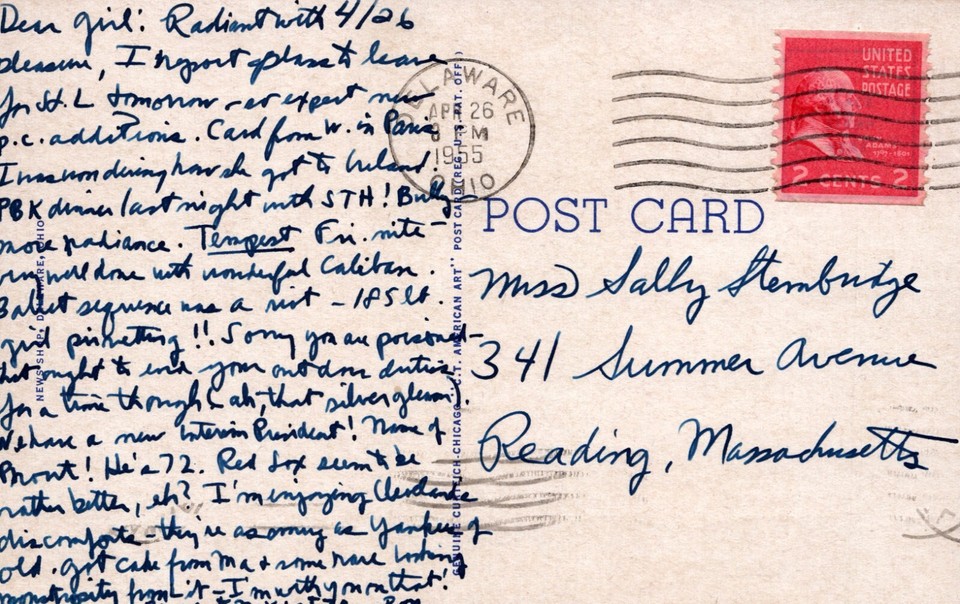 Dear Girl: Radiant with 4/26
pleasure, I report plans to leave
for St. L tomorrow - so expect new
p.c. additions. Card from W. in Paris
I was wondering how she got to Ireland.
PBK dinner last night with STH! Bully-
more radiance. Tempest Fri. nite
well done with wonderful Caliban.
Ballet sequence was a riot - 185 lb.
girl pirouetting!! Sorry you are poisoned-
that ought to end your outdoor duties
for a time though - ah, that silver gleam!
We have a new Interim President! Name of
Prout! He's 72. Red Sox seem to be
rather better, eh? I'm enjoying Cleveland's
discomforts - they're as as Yankees of
old. Got cake from Ma & some rare looking
monstrosity from - I'm with you on that!
NEWS SHOP, DELAWARE, OHIO
GENUINE CURTEICH-CHICAGO "C.T. AMERICAN ART" POST CARD (REG. U.S. PAT. OFF.)
DELAWARE
APR 26
PM
1955
OHIO
UNITED
STATES
POSTAGE
ADAMS
2 CENTS 2
POST CARD
Miss Sally Stembridge
341 Summer Avenue
Reading, Massachusetts